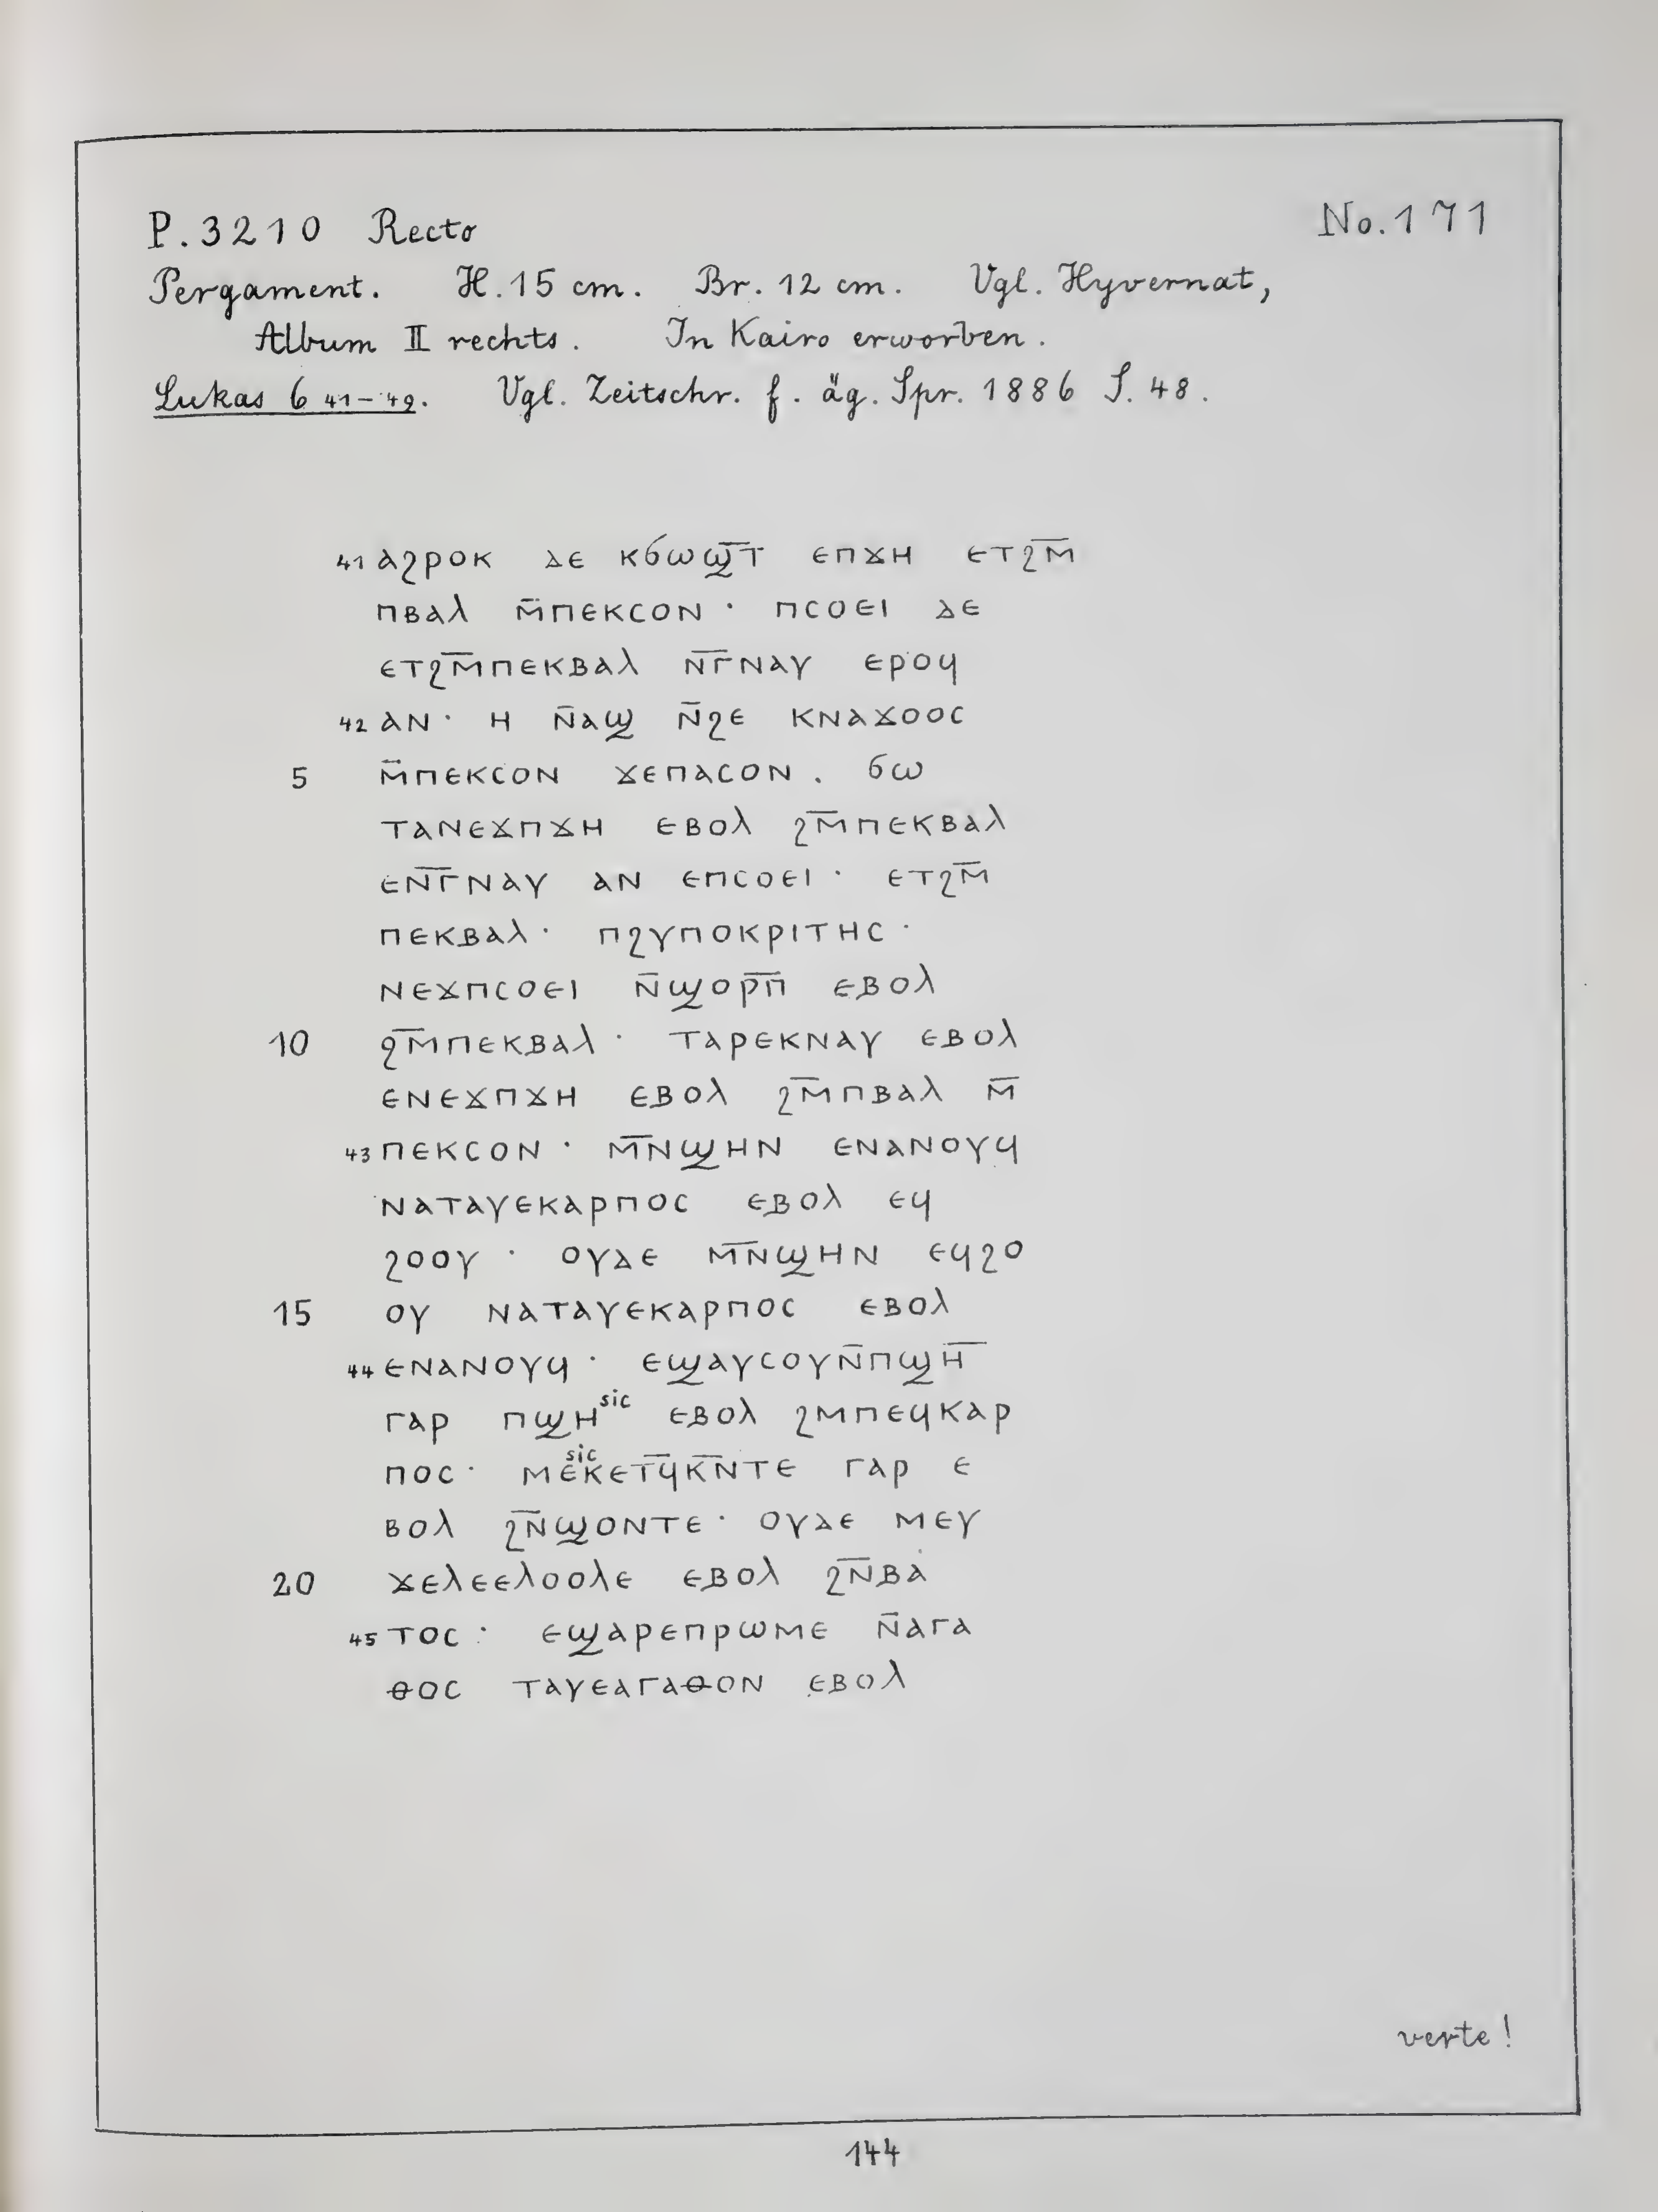 P.3210 Recto No. 171
Pergament. H. 15 cm. Br. 12 cm. Vgl. Hyvernat,
Album II rechts. In Kairo erworben.
Lukas 6 41-49. Vgl. Zeitschr. f. äg. Spr. 1886 S. 48.
41 ⲁϩⲣⲟⲕ ⲇⲉ ⲕϭⲱϣ̅ⲧ̅ ⲉⲡϫⲏ ⲉⲧϩ̅ⲙ̅
ⲡⲃⲁⲗ ⲙ̅ⲡⲉⲕⲥⲟⲛ · ⲡⲥⲟⲉⲓ ⲇⲉ
ⲉⲧϩ̅ⲙ̅ⲡⲉⲕⲃⲁⲗ ⲛ̅ⲅ̅ⲛⲁⲩ ⲉⲣⲟϥ
42 ⲁⲛ · ⲏ ⲛ̅ⲁϣ ⲛ̅ϩⲉ ⲕⲛⲁϫⲟⲟⲥ
5 ⲙ̅ⲡⲉⲕⲥⲟⲛ ϫⲉⲡⲁⲥⲟⲛ . ϭⲱ
ⲧⲁⲛⲉϫⲡϫⲏ ⲉⲃⲟⲗ ϩ̅ⲙ̅ⲡⲉⲕⲃⲁⲗ
ⲉⲛ̅ⲅ̅ⲛⲁⲩ ⲁⲛ ⲉⲡⲥⲟⲉⲓ · ⲉⲧϩ̅ⲙ̅
ⲡⲉⲕⲃⲁⲗ · ⲡϩⲩⲡⲟⲕⲣⲓⲧⲏⲥ ·
ⲛⲉϫⲡⲥⲟⲉⲓ ⲛ̅ϣⲟⲣ̅ⲡ̅ ⲉⲃⲟⲗ
10 ϩ̅ⲙ̅ⲡⲉⲕⲃⲁⲗ · ⲧⲁⲣⲉⲕⲛⲁⲩ ⲉⲃⲟⲗ
ⲉⲛⲉϫⲡϫⲏ ⲉⲃⲟⲗ ϩ̅ⲙ̅ⲡⲃⲁⲗ ⲙ̅
43 ⲡⲉⲕⲥⲟⲛ · ⲙ̅ⲛ̅ϣⲏⲛ ⲉⲛⲁⲛⲟⲩϥ
ⲛⲁⲧⲁⲩⲉⲕⲁⲣⲡⲟⲥ ⲉⲃⲟⲗ ⲉϥ
ϩⲟⲟⲩ · ⲟⲩⲇⲉ ⲙ̅ⲛ̅ϣⲏⲛ ⲉϥϩⲟ
15 ⲟⲩ ⲛⲁⲧⲁⲩⲉⲕⲁⲣⲡⲟⲥ ⲉⲃⲟⲗ
44 ⲉⲛⲁⲛⲟⲩϥ · ⲉϣⲁⲩⲥⲟⲩⲛ̅ⲡϣⲏ̅
ⲅⲁⲣ ⲡϣⲏ sic ⲉⲃⲟⲗ ϩⲙⲡⲉϥⲕⲁⲣ
ⲡⲟⲥ · ⲙⲉⲕⲉⲧ̅ϥ̅ⲕ̅ⲛ̅ⲧⲉ sic ⲅⲁⲣ ⲉ
ⲃⲟⲗ ϩ̅ⲛ̅ϣⲟⲛⲧⲉ · ⲟⲩⲇⲉ ⲙⲉⲩ
20 ϫⲉⲗⲉⲉⲗⲟⲟⲗⲉ ⲉⲃⲟⲗ ϩ̅ⲛ̅ⲃⲁ
45 ⲧⲟⲥ · ⲉϣⲁⲣⲉⲡⲣⲱⲙⲉ ⲛ̅ⲁⲅⲁ
ⲑⲟⲥ ⲧⲁⲩⲉⲁⲅⲁⲑⲟⲛ ⲉⲃⲟⲗ
verte!
144